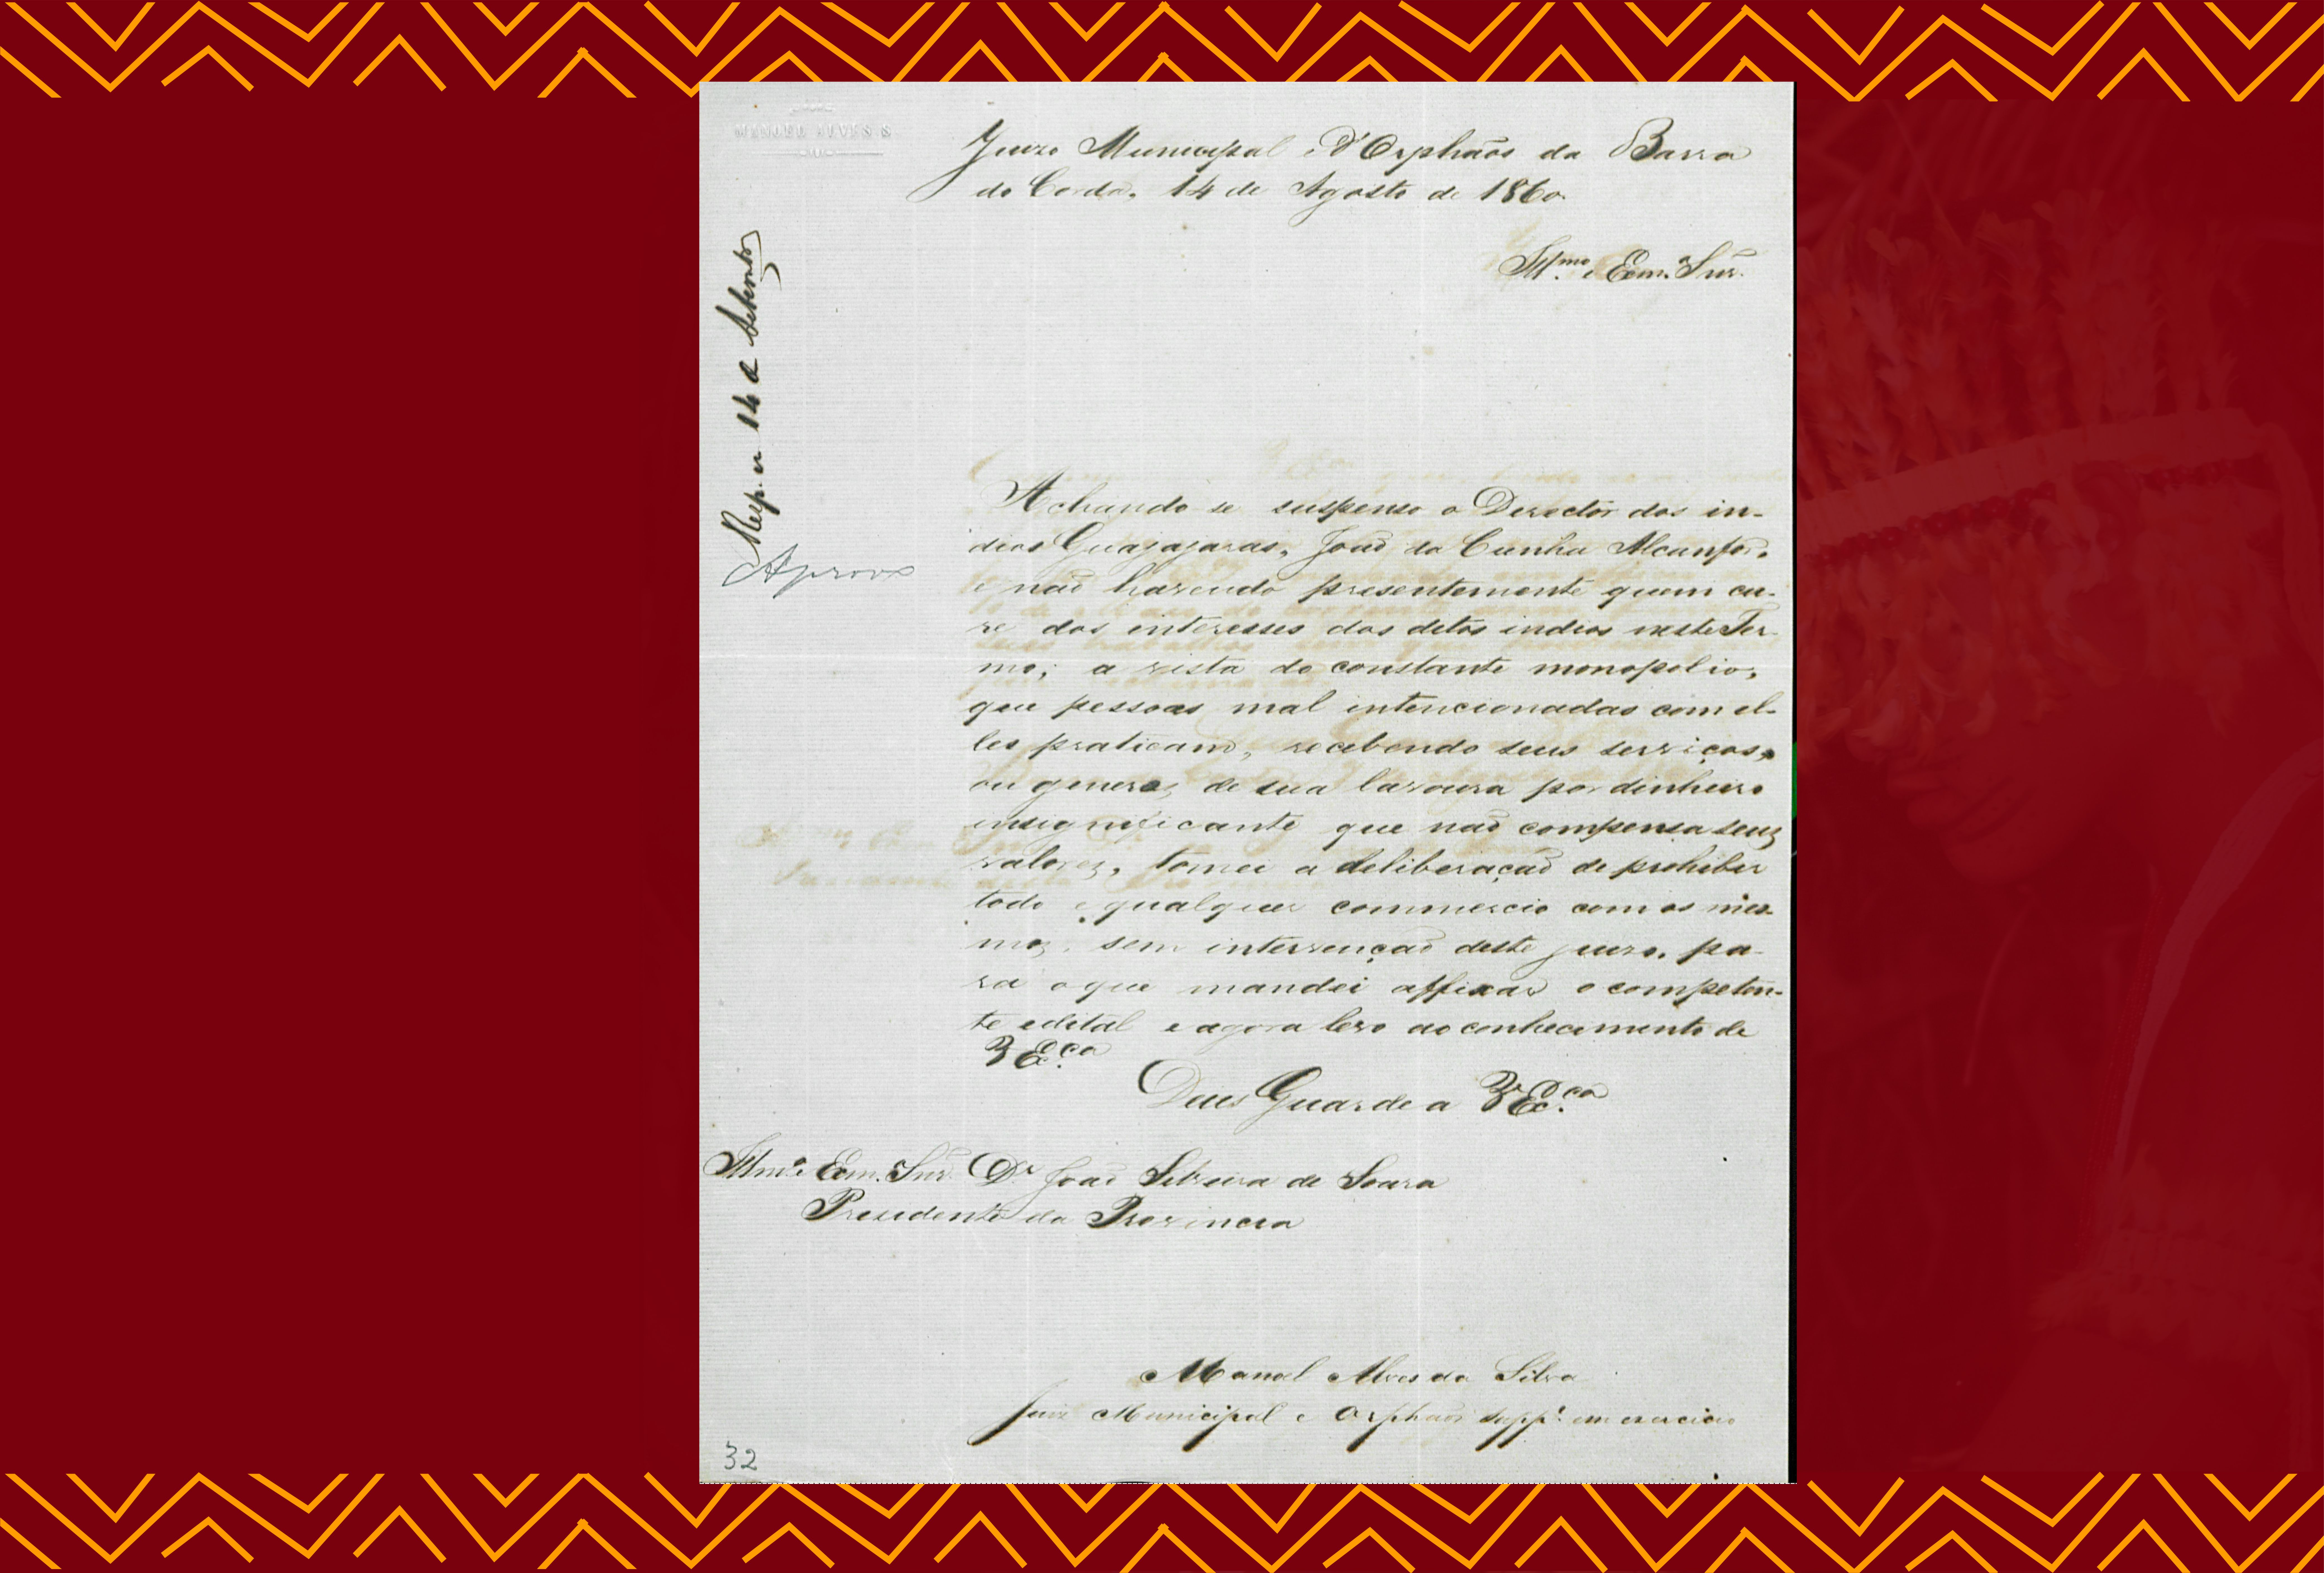 MANOEL ALVES S.
Juizo Municipal e d'Orphãos da Barra
do Corda, 14 de Agosto de 1860.
Illmo. e Exmo. Snr.
Resp. a 14 de Setembro
Aprovo
Achando se suspenso o Director dos in-
dios Guajajaras, João da Cunha Alcanfor,
e não havendo presentemente quem cu-
re dos interesses dos ditos indios neste Ter-
mo; a vista do constante monopolio,
que pessoas mal intencionadas com el-
les praticam, recebendo seus serviços,
ou generos de sua lavoura por dinheiro
insignificante que não compensa seus
valores, tomei a deliberação de prohibir
todo e qualquer commercio com os mes-
mos, sem intervenção deste juizo, pa-
ra o que mandei affixar o competen-
te edital e agora levo ao conhecimento de
V Exca.
Deus Guarde a V Exca.
Illmo. e Exmo. Snr. Dr. João Silveira de Souza
Presidente da Provincia
Manoel Alves da Silva
Juiz Municipal e Orphãos suppe. em exercicio
32